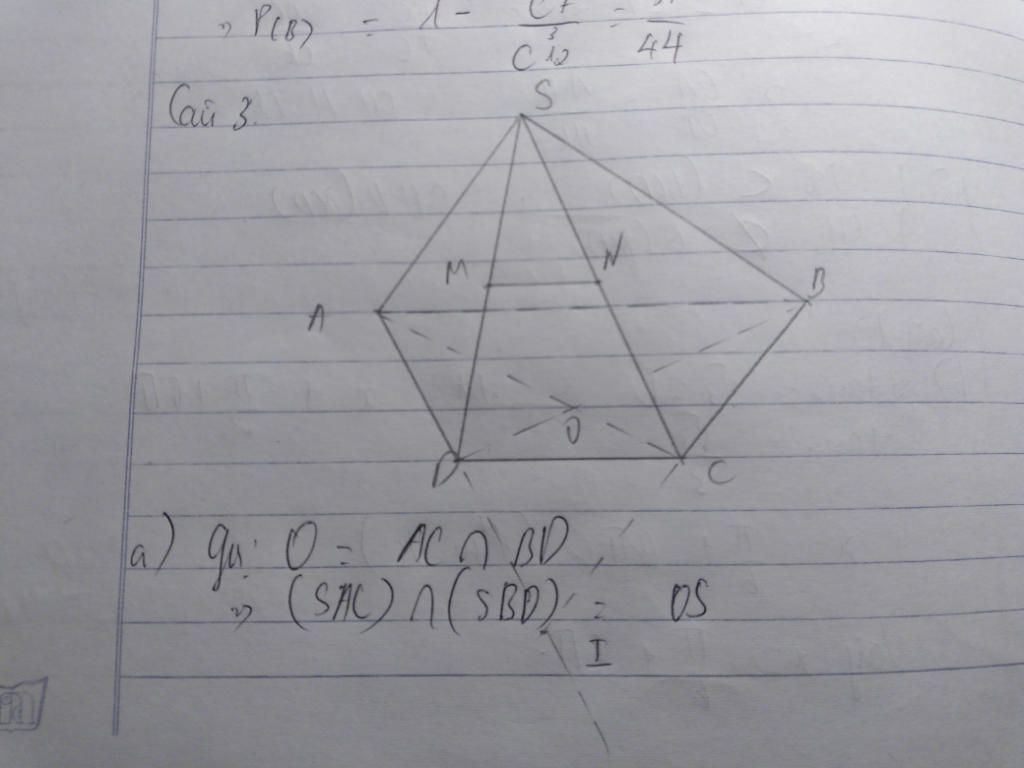 => P(B) = 1 - C7 3 / C 3 12 = / 44
Câu 3.
S
M N
A B
O
D C
a) Gọi O = AC ∩ BD
=> (SAC) ∩ (SBD) = OS
I